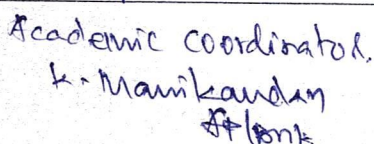 Academic Coordinator.
K. Manikandan